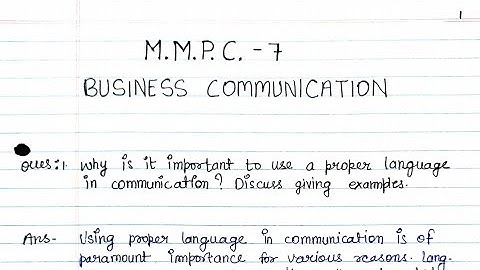 1
M.M.P.C. - 7
BUSINESS COMMUNICATION
Ques:1. Why is it important to use a proper language
in communication? Discuss giving examples.
Ans- Using proper language in communication is of
paramount importance for various reasons. Lang-